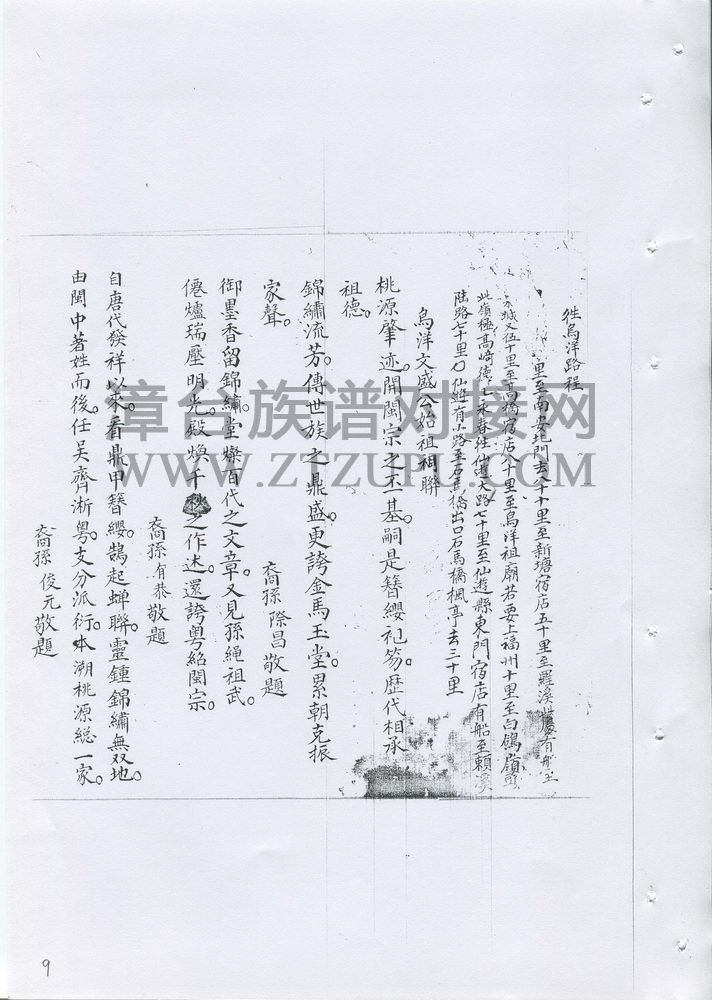 往烏洋路程
里至南安北門去六十里至新塘宿店五十里至羅溪有船至
永城又伍十里至高橋宿店八十里至烏洋祖廟若要上福州十里至白鴿嶺頭
此嶺極高崎　永春往仙遊大路七十里至仙遊縣東門宿店有船至賴溪
陸路七十里 仙遊有小路至石馬橋出口石馬橋楓亭去三十里
烏洋文盛公始祖祠聯
桃源肇迹。開閩宗之丕基。嗣是簪纓袍笏。歷代相承
祖德。
錦繡流芳。傳世族之鼎盛。更誇金馬玉堂。累朝克振
家聲。
裔孫際昌敬題
御墨香留錦繡。堂燦百代之文章。又見孫繩祖武。
僊爐瑞壓明光。殿煥千之作述。還誇粵紹閩宗。
裔孫有恭敬題
自唐代發祥以來。看鼎甲簪纓。鵲起蟬聯。靈鍾錦繡無双地。
由閩中著姓而後。任吴齊浙粵。支分派衍。本溯桃源総一家。
裔孫俊元敬題
章台族谱对接网
WWW.ZTZUPU.COM
9